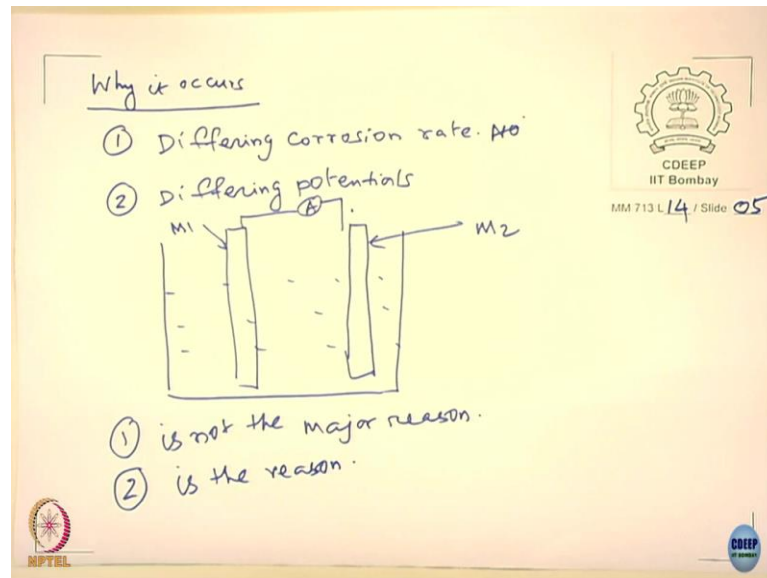 Why it occurs
① Differing corrosion rate.
② Differing potentials
A
M1
M2
① is not the major reason.
② is the reason.
CDEEP
IIT Bombay
MM 713 L 14 / Slide 05
NPTEL
CDEEP
IIT BOMBAY